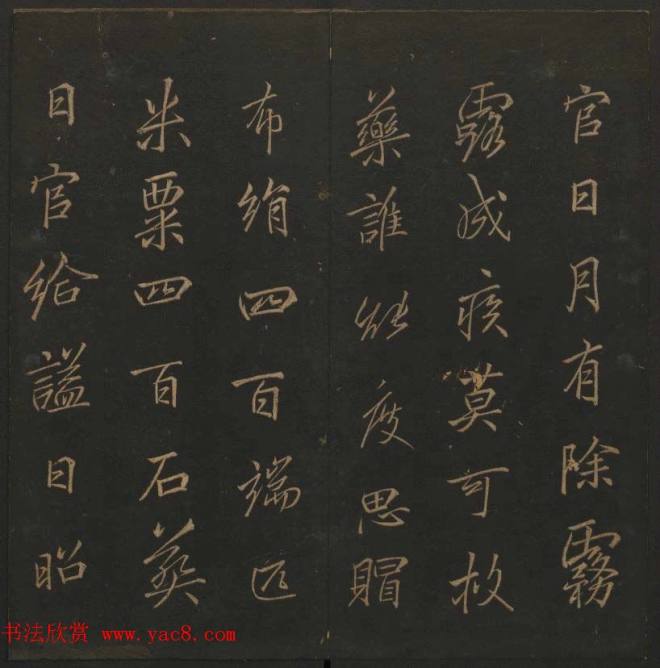 官日月有除霧
露成疾莫可救
藥誰能度思賵
布絹四百端匹
米粟四百石葬
日官給謚曰昭
书法欣赏 www.yac8.com